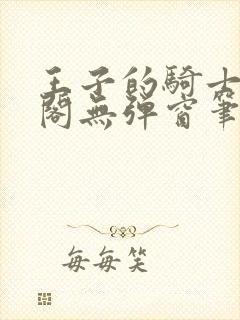 王子的騎士
閣無彈窗筆
每每笑